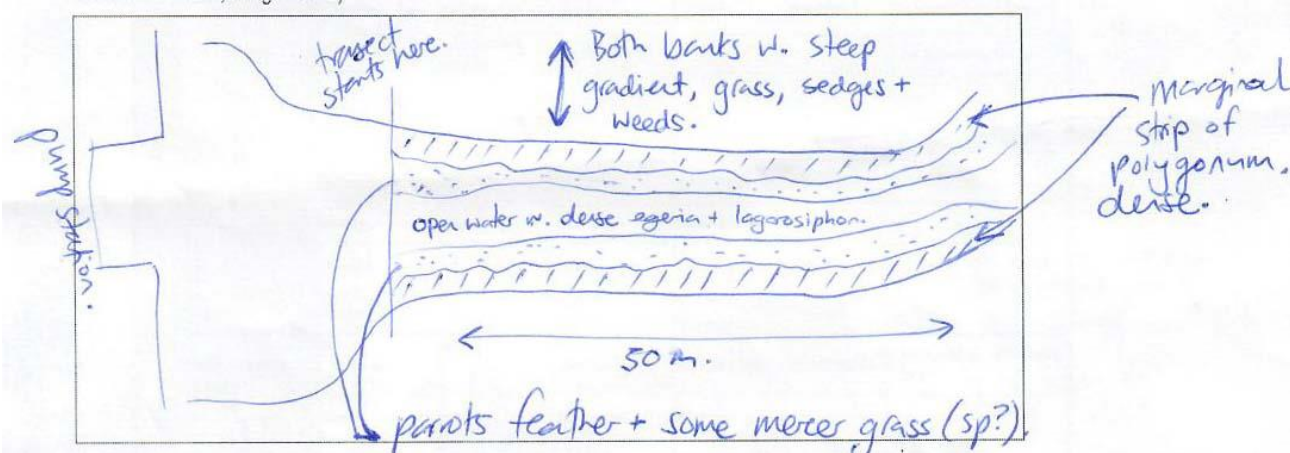 trasect
starts here.
Both banks w. steep
gradient, grass, sedges +
weeds.
marginal
strip of
polygonum.
dense.
pump station.
open water w. dense egeria + lagorosiphon.
50 m.
parrots feather + some mercer grass (sp?).